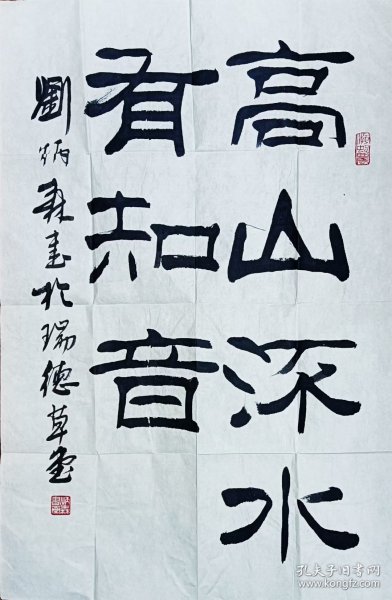 高山流水
有知音
劉炳森書於瑞德草堂
孔夫子旧书网
kongfz.com